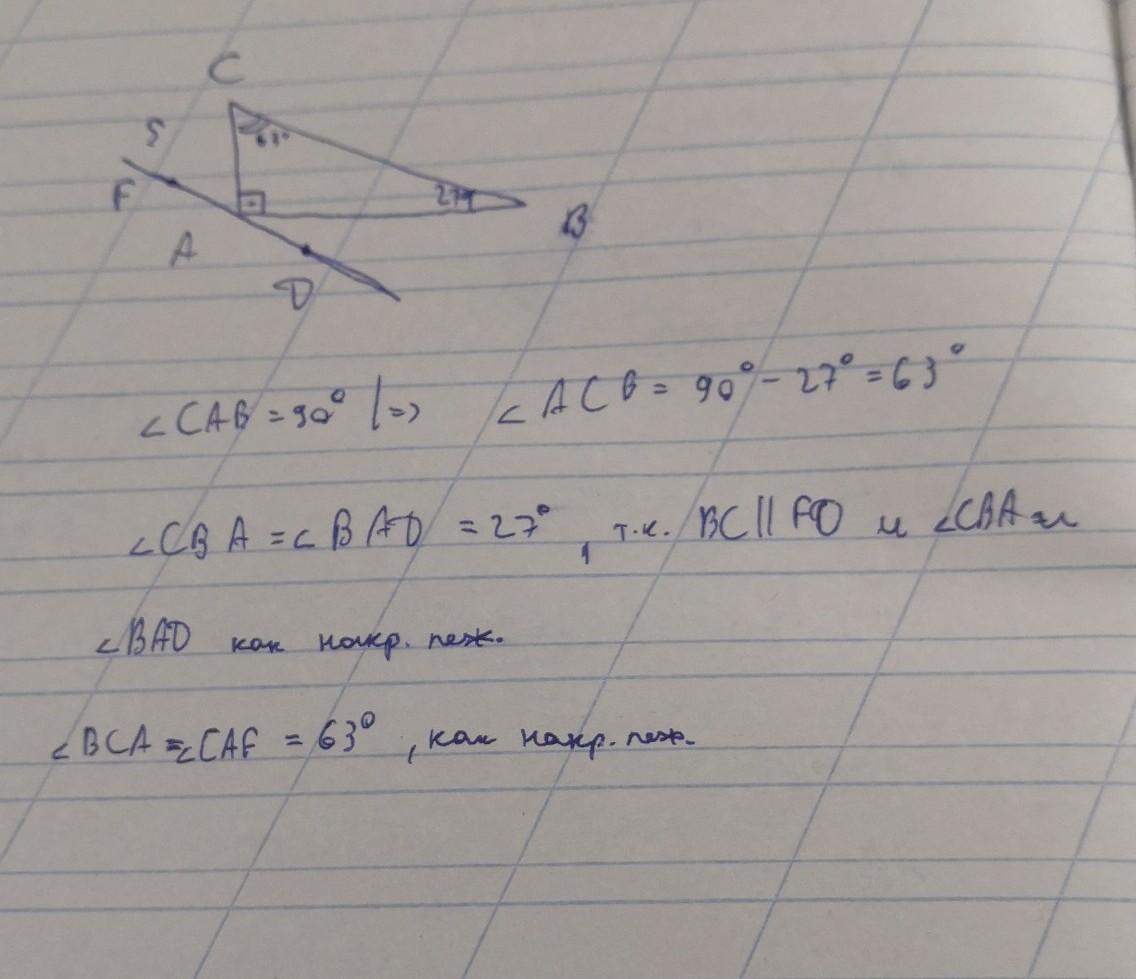 C
S
63°
F
27°
B
A
D
∠CAB = 90° |=> ∠ACB = 90° - 27° = 63°
∠CBA = ∠BAD = 27°, т.к. BC || FD и ∠CBA и
∠BAD как накр. леж.
∠BCA = ∠CAF = 63°, как накр. леж.